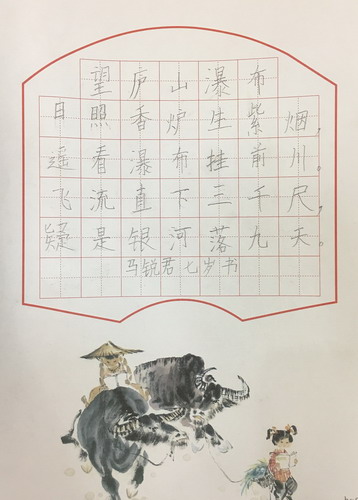 望庐山瀑布
日照香炉生紫烟,
遥看瀑布挂前川。
飞流直下三千尺,
疑是银河落九天。
马锐君七岁书